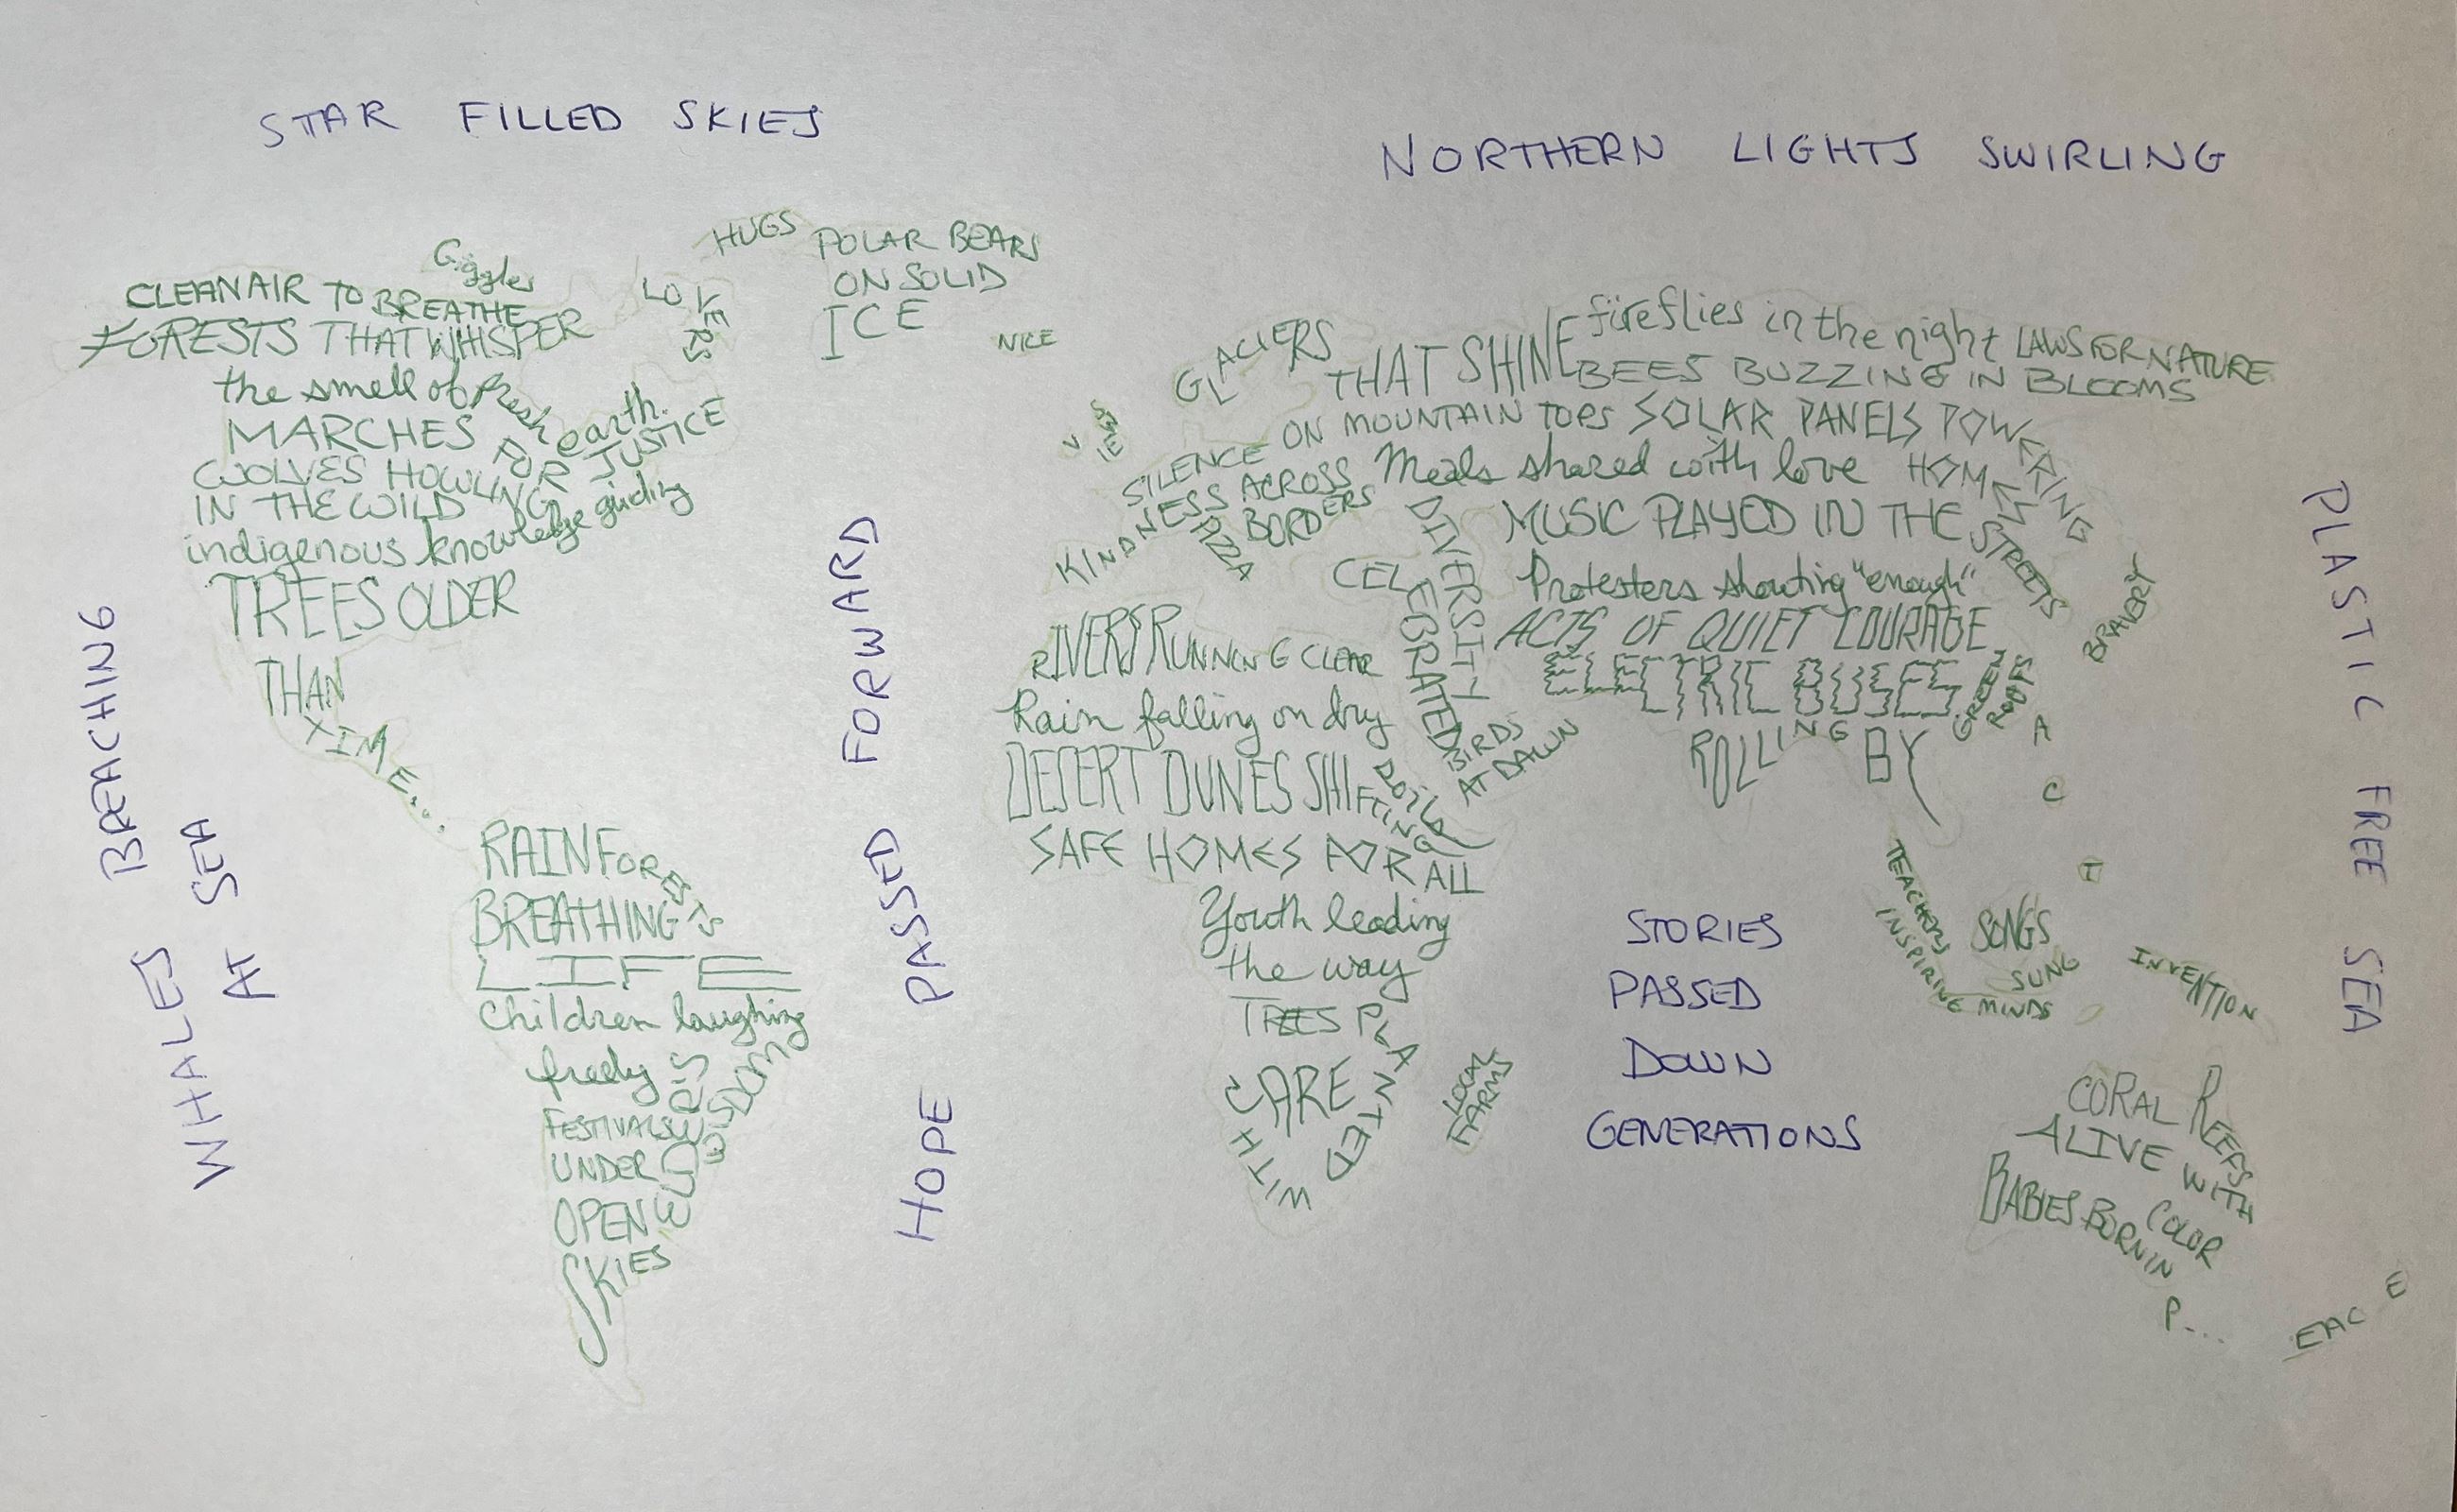 STAR FILLED SKIES
NORTHERN LIGHTS SWIRLING
Giggles
HUGS
LOVERS
POLAR BEARS
ON SOLID
ICE
NICE
CLEAN AIR TO BREATHE
FORESTS THAT WHISPER
the smell of fresh earth.
MARCHES FOR JUSTICE
WOLVES HOWLING
IN THE WILD
indigenous knowledge guiding
TREES OLDER
THAN
TIME...
RAINFORESTS
BREATHING
LIFE
Children laughing
freely
FESTIVALS
UNDER
OPEN
SKIES
ELDERS
WISDOM
WHALES BREACHING
AT SEA
HOPE PASSED FORWARD
GLACIERS
THAT SHINE
fireflies in the night
LAWS FOR NATURE
BEES BUZZING IN BLOOMS
SILENCE ON MOUNTAIN TOPS
SOLAR PANELS POWERING
HOMES
KINDNESS ACROSS
BORDERS
PIZZA
Meals shared with love
MUSIC PLAYED IN THE STREETS
DIVERSITY
CELEBRATED
Protesters shouting "enough"
ACTS OF QUIET COURAGE
ELECTRIC BUSES
ROLLING BY
GREEN
ROOFS
BRAVERY
BIRDS
AT DAWN
RIVERS RUNNING CLEAR
Rain falling on dry
soil
DESERT DUNES SHIFTING
SAFE HOMES FOR ALL
Youth leading
the way
TREES PLANTED
WITH
CARE
LOCAL
FARMS
STORIES
PASSED
DOWN
GENERATIONS
A
C
T
TEACHERS
INSPIRING MINDS
SONGS
SUNG
INVENTION
CORAL REEFS
ALIVE WITH
COLOR
BABIES BORN IN
P...
EACE
PLASTIC FREE SEA